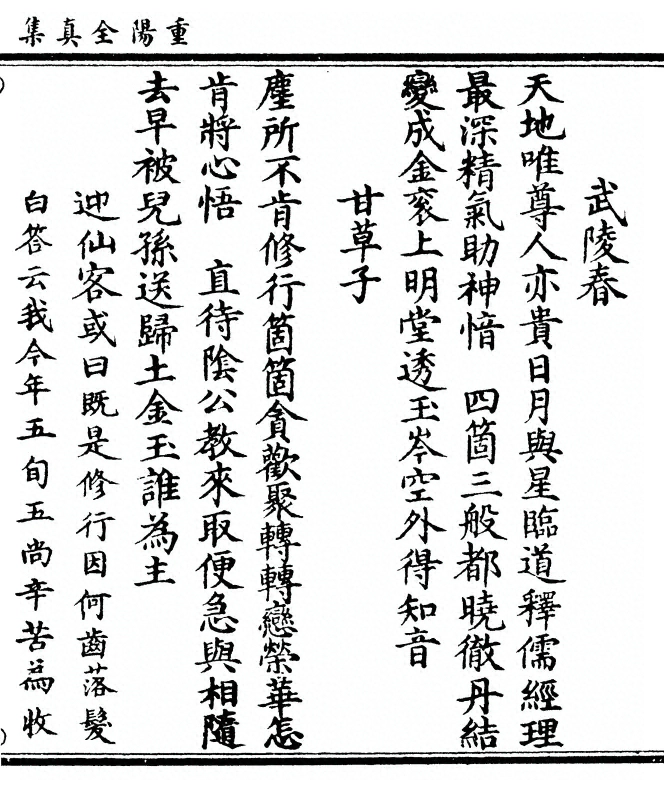 重陽全真集
武陵春
天地唯尊人亦貴日月與星臨道釋儒經理
最深精氣助神愔　四箇三般都曉徹丹結
變成金衮上明堂透玉岑空外得知音
甘草子
塵所不肯修行箇箇貪歡聚轉轉戀榮華怎
肯將心悟　直待陰公教來取便急與相隨
去早被兒孫送歸土金玉誰為主
迎仙客或曰既是修行因何齒落髮
白答云我今年五旬五尚辛苦為收